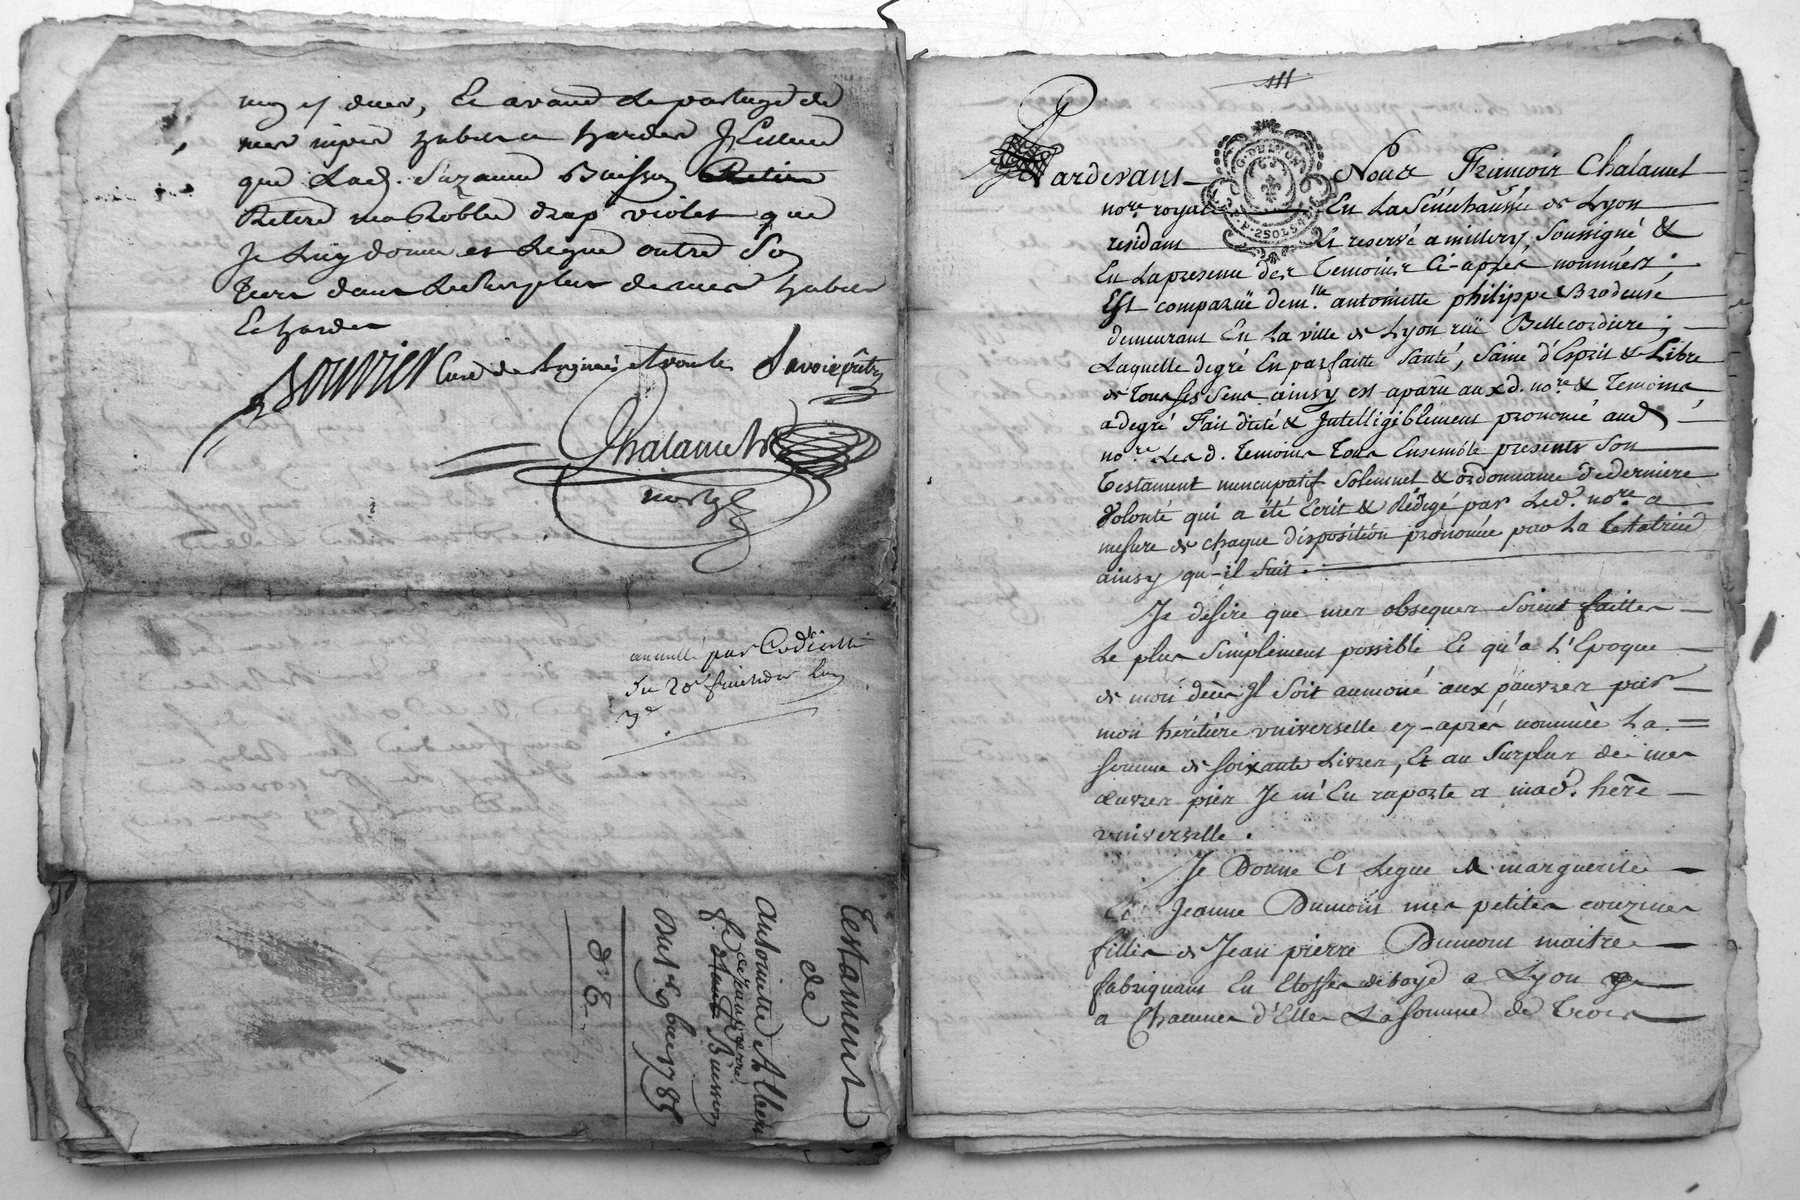 que Lad. Suzanne Buisson
Retire ma Robbe drap violet que
Je Luy donne et Legue outre Son
tiers dans Le Surplus de mes habits
Et hardes
Souvier Curé de
Savoie ptre
Chalamet
nore
annullé par Codicille
Testament
de
Antoinette
Buisson
Du 9bre 1785
Pardevant Nous Chalamet
nore. royal En La Sénéchaussée de Lyon
residant Et reservé a millery, Soussigné &
En La presence des Temoins Ci-après nommés ;
Est comparüe demlle. antoinette philippe Brodeuse
demeurant En La ville de Lyon rüe Bellecordiere ;
Laquelle degré En parfaitte Santé, Saine d'Esprit & Libre
de tous ses Sens ainsy est aparu aux d. nore & Temoins,
a degré Fait dicté & Jntelligiblement prononcé aud
nore. Les d. temoins tous Ensemble presents Son
Testament nuncupatif Solemnel & ordonnance de derniere
Volonté qui a été Ecrit & Rédigé par Led. nore a
mesure de chaque disposition prononcée par La testatrice
ainsy qu-il Suit.
Je desire que mes obseques Soient faittes
Le plus Simplement possible Et qu'a L'Epoque
de mon décès Jl Soit aumoné aux pauvres par
mon héritière universelle cy-après nommée La
Somme de Soixante Livres, Et au Surplus de mes
œuvres pies Je m'En raporte a mad. here
universelle.
Je Donne Et Legue A marguerite
Et Jeanne Dumont mes petites couzines
filles de Jean pierre Dumont maitre
fabriquant En Etoffes de soye a Lyon
a Chacune d'Elles La Somme de trois